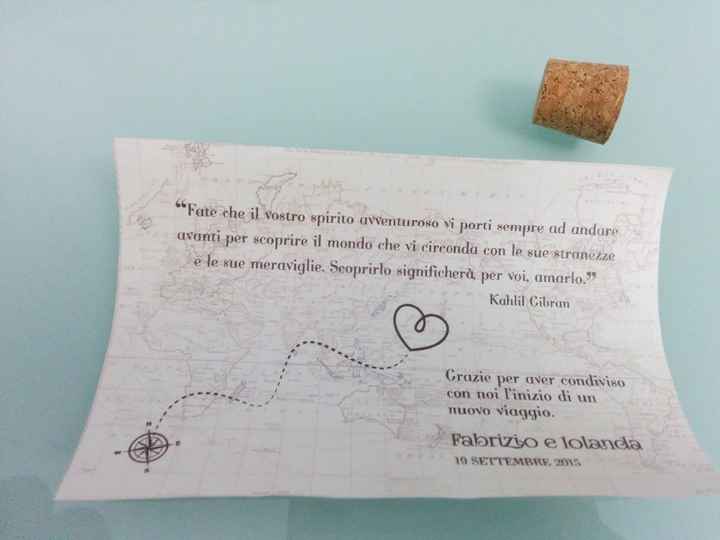 “Fate che il vostro spirito avventuroso vi porti sempre ad andare
avanti per scoprire il mondo che vi circonda con le sue stranezze
e le sue meraviglie. Scoprirlo significherà, per voi, amarlo.”
Kahlil Gibran
Grazie per aver condiviso
con noi l'inizio di un
nuovo viaggio.
Fabrizio e Iolanda
10 SETTEMBRE 2015
N
W E
S